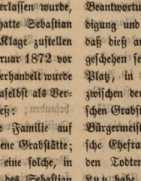 erlassen wurde,
hatte Sebastian
Klage zustellen
ruar 1872 vor
erhandelt wurde
aselbst als Ver-
eß:
Familie auf
ene Grabstätte;
eine solche, in
des Sebastian
Beantwortu
digung und
daß dieß a
geschehen se
Platz, in
zwischen de
schen Grabst
Bürgermeist
sche Ehefra
den Todten